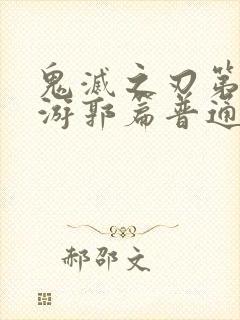 鬼滅之刃第
游郭篇普通
郝邵文